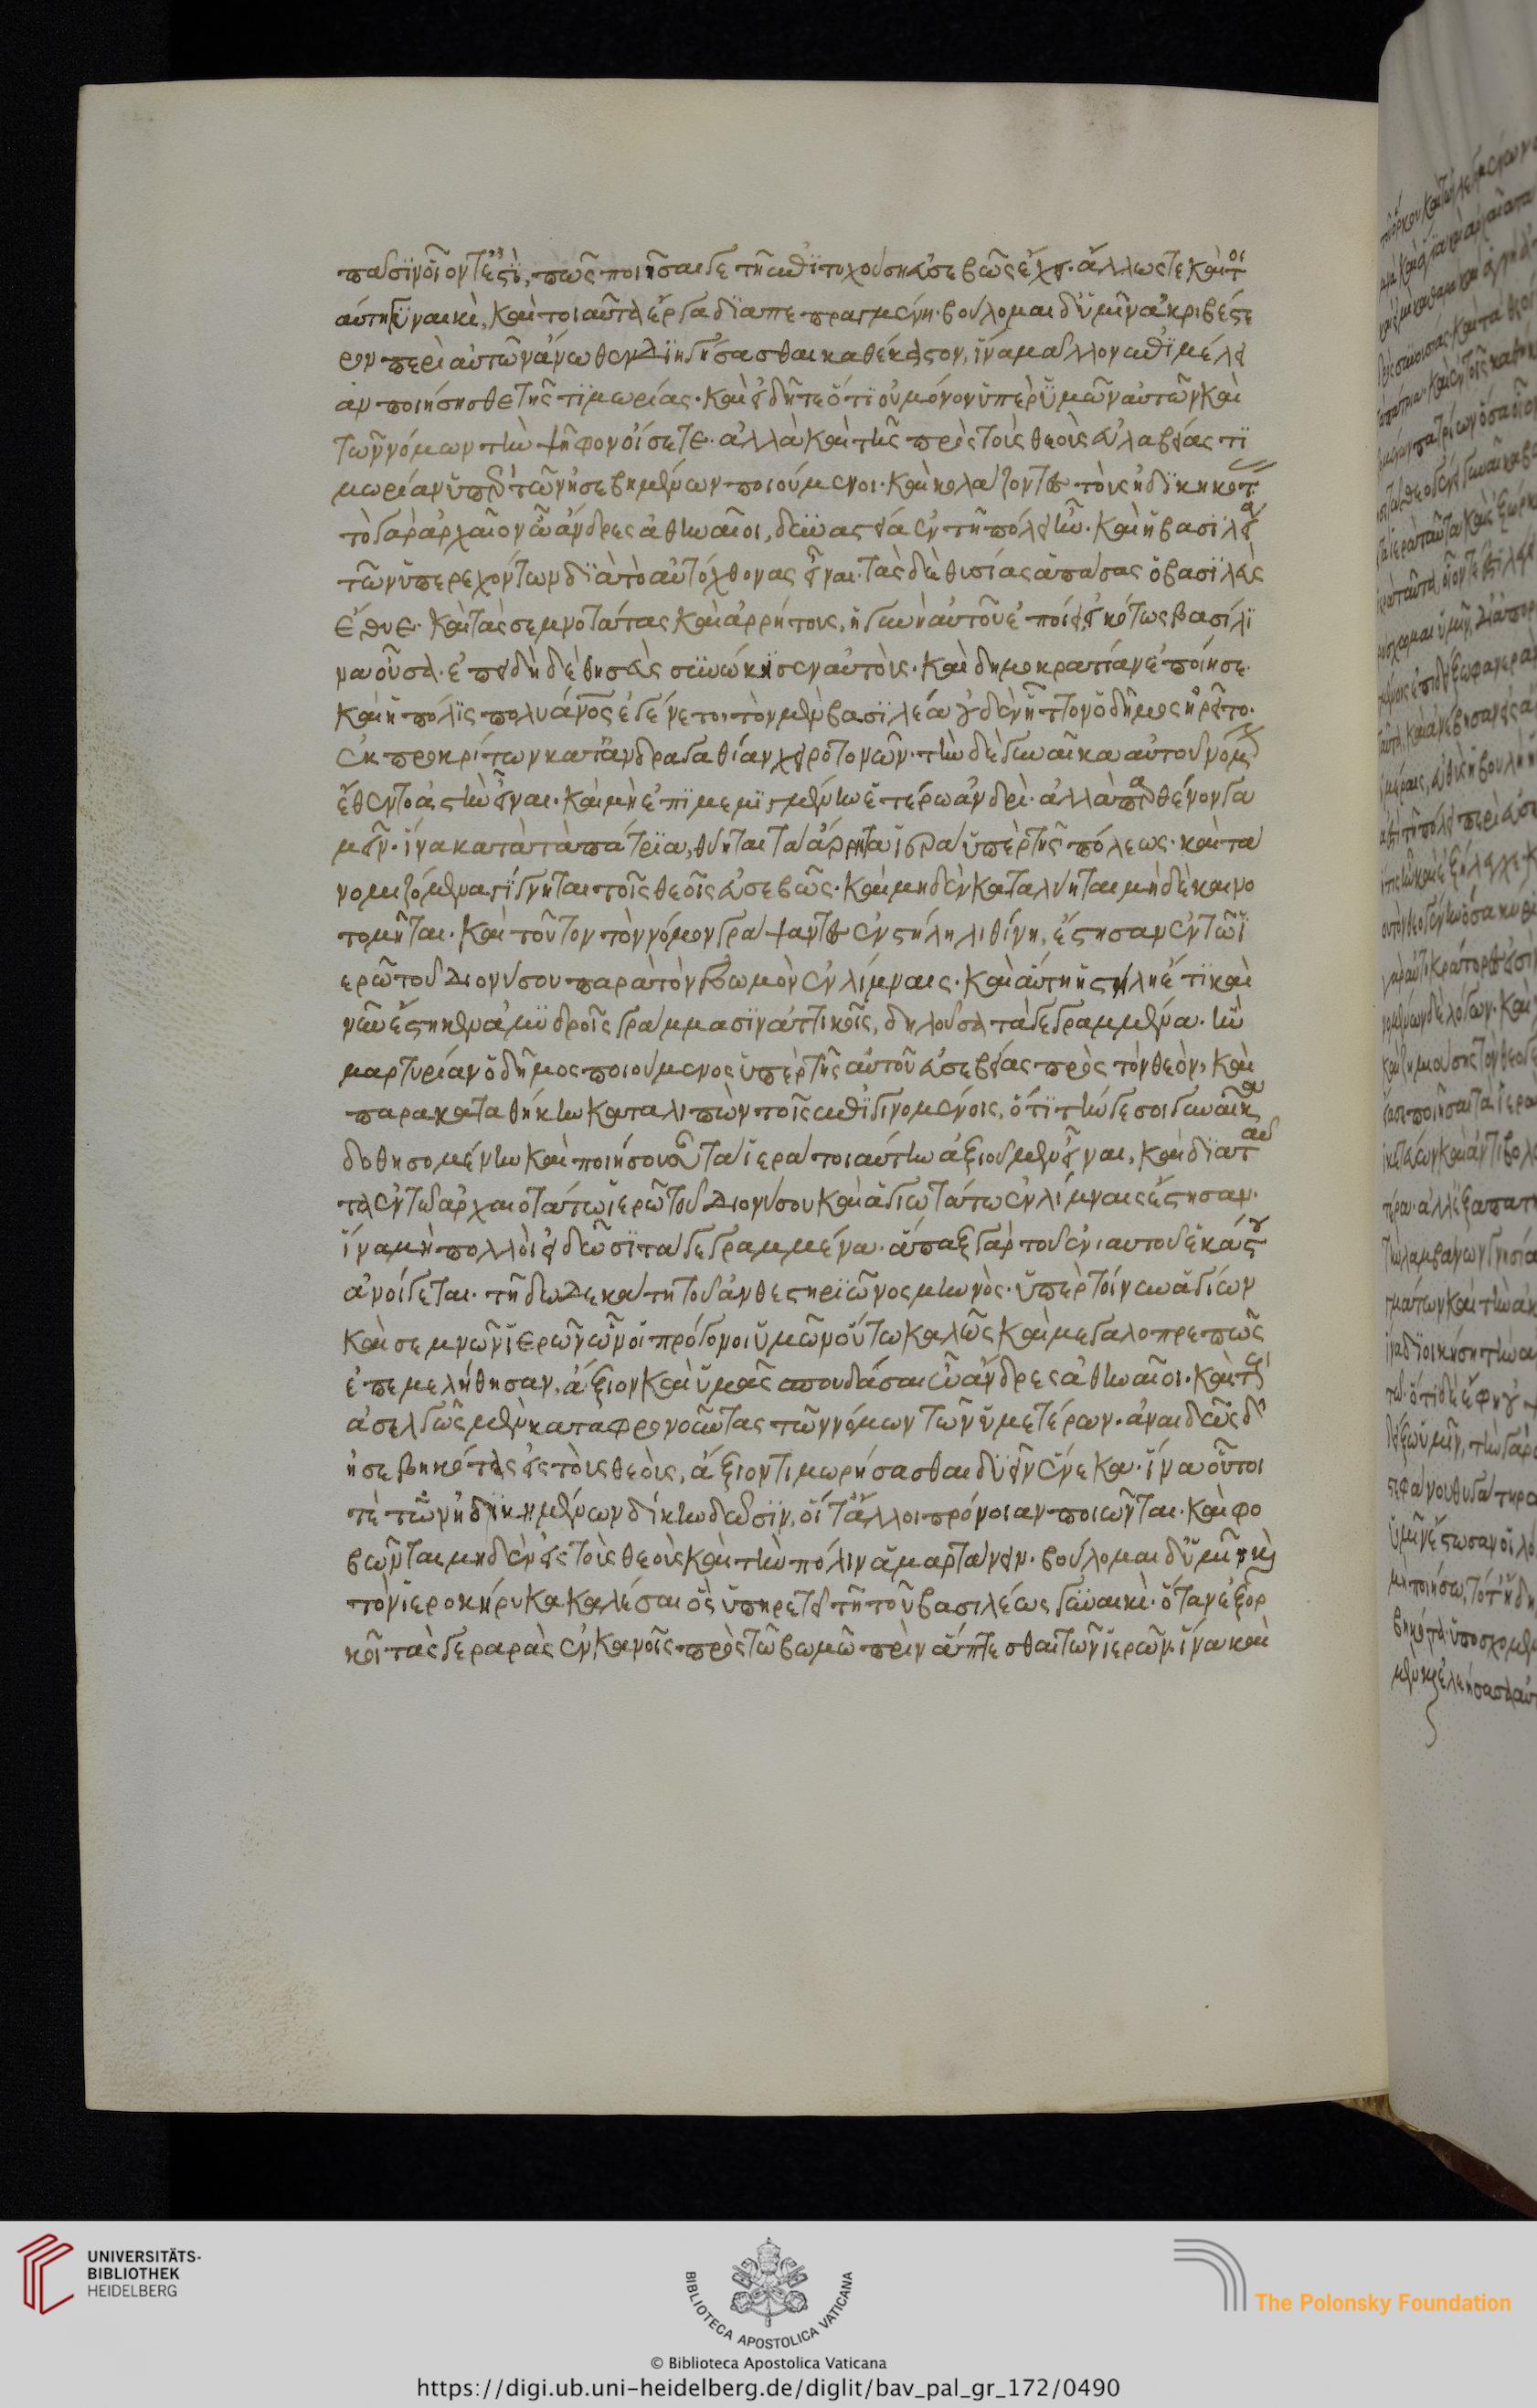 πᾶσιν οἷόντ' ἐστί, πῶς ποιῆσαί γε τῇ ἐπιτυχούσῃ εὐσεβῶς ἔχει. ἄλλως τε καὶ τοι
αύτῃ γυναικὶ, καὶ τοιαῦτα ἔργα διαπεπραγμένῃ. βούλομαι δ' ὑμῖν ἀκριβέστε
ρον περὶ αὐτῶν ἄνωθεν διηγήσασθαι καθέκαστον, ἵνα μᾶλλον ἐπιμέλει
αν ποιήσησθε τῆς τιμωρίας. καὶ εἰδῆτε ὅτι οὐ μόνον ὑπὲρ ὑμῶν αὐτῶν καὶ
τῶν νόμων τὴν ψῆφον οἴσετε. ἀλλὰ καὶ τῆς πρὸς τοὺς θεοὺς εὐλαβείας τι
μωρίαν ὑπὲρ τῶν ἠσεβημένων ποιούμενοι. καὶ κολάζοντες τοὺς ἠδικηκότ
τὸ γὰρ ἀρχαῖον ὦ ἄνδρες ἀθηναῖοι, δυναστεία ἐν τῇ πόλει ἦν. καὶ ἡ βασιλεία
τῶν ὑπερεχόντων διὰ τὸ αὐτόχθονας εἶναι. τὰς δὲ θυσίας ἁπάσας ὁ βασιλεὺς
ἔθυε. καὶ τὰς σεμνοτάτας καὶ ἀρρήτους, ἡ γυνὴ αὐτοῦ ἐποίει, εἰκότως βασίλι
να οὖσα. ἐπειδὴ δὲ θησεὺς συνώκισεν αὐτοὺς. καὶ δημοκρατίαν ἐποίησε.
καὶ ἡ πόλις πολυάνος ἐγένετο, τὸν μὲν βασιλέα οὐδὲν ἧττον ὁ δῆμος ᾑρεῖτο.
ἐκ προκρίτων κατ' ἀνδραγαθίαν χειροτονῶν. τὴν δὲ γυναῖκα αὐτοῦ νόμον
ἔθεντο ἀστὴν εἶναι. καὶ μὴ ἐπιμεμιγμένην ἑτέρω ἀνδρὶ. ἀλλὰ παρθένον γα
μεῖν. ἵνα κατὰ τὰ πάτρια, θύηται τὰ ἄρρητα ἱερὰ ὑπὲρ τῆς πόλεως. καὶ τὰ
νομιζόμενα γίγνηται τοῖς θεοῖς εὐσεβῶς. καὶ μηδὲν καταλύηται μὴδὲ καινο
τομῆται. καὶ τοῦτον τὸν νόμον γράψαντες ἐν στήλη λιθίνη, ἔστησαν ἐν τῶ ἱ
ερῶ τοῦ Διονύσου παρὰ τὸν βωμὸν ἐν λίμναις. καὶ αὕτη ἡ στήλη ἔτι καὶ
νῦν ἕστηκεν ἀμυδροῖς γράμμασιν ἀττικοῖς, δηλοῦσα τὰ γεγραμμένα. ἣν
μαρτυρίαν ὁ δῆμος ποιούμενος ὑπὲρ τῆς αὑτοῦ εὐσεβείας πρὸς τὸν θεὸν, καὶ
παρακαταθήκην καταλιπὼν τοῖς ἐπιγινομένοις, ὅτι τήν γε σοι γυναῖκα
δοθησομένην καὶ ποιήσουσαν τὰ ἱερὰ τοιαύτην ἀξιοῦμεν εἶναι, καὶ διὰ ταῦ
τα ἐν τῶ ἀρχαιοτάτω ἱερῶ τοῦ Διονύσου καὶ ἁγιωτάτω ἐν λίμναις ἔστησαν.
ἵνα μὴ πολλοὶ εἰδῶσι τὰ γεγραμμένα. ἅπαξ γὰρ τοῦ ἐνιαυτοῦ ἑκάστου
ἀνοίγεται. τῇ δωδεκάτῃ τοῦ ἀνθεστηριῶνος μηνὸς. ὑπὲρ τοίνυν ἁγίων
καὶ σεμνῶν ἱερῶν ὧν οἱ πρόγονοι ὑμῶν οὕτω καλῶς καὶ μεγαλοπρεπῶς
ἐπεμελήθησαν, ἄξιον καὶ ὑμᾶς σπουδάσαι ὦ ἄνδρες ἀθηναῖοι. καὶ τ
ἀσελγῶς μὲν καταφρονοῦντας τῶν νόμων τῶν ὑμετέρων. ἀναιδῶς δ'
ἠσεβηκότας εἰς τοὺς θεοὺς, ἄξιον τιμωρήσασθαι δυεῖν ἕνεκα. ἵνα οὗτοι
τὲ τῶν ἠδικημένων δίκην δῶσιν, οἵ τ' ἄλλοι πρόνοιαν ποιῶνται. καὶ φο
βῶνται μηδὲν εἰς τοὺς θεοὺς καὶ τὴν πόλιν ἁμαρτάνειν. βούλομαι δ' ὑμῖν καὶ
τὸν ἱεροκήρυκα καλέσαι ὃς ὑπηρετεῖ τῇ τοῦ βασιλέως γυναικὶ. ὅταν ἐξορ
κοῖ τὰς γεραρὰς ἐν κανοῖς πρὸς τῶ βωμῶ πρὶν ἅπτεσθαι τῶν ἱερῶν. ἵνα καὶ
UNIVERSITÄTS-
BIBLIOTHEK
HEIDELBERG
BIBLIOTECA APOSTOLICA VATICANA
The Polonsky Foundation
© Biblioteca Apostolica Vaticana
https://digi.ub.uni-heidelberg.de/diglit/bav_pal_gr_172/0490